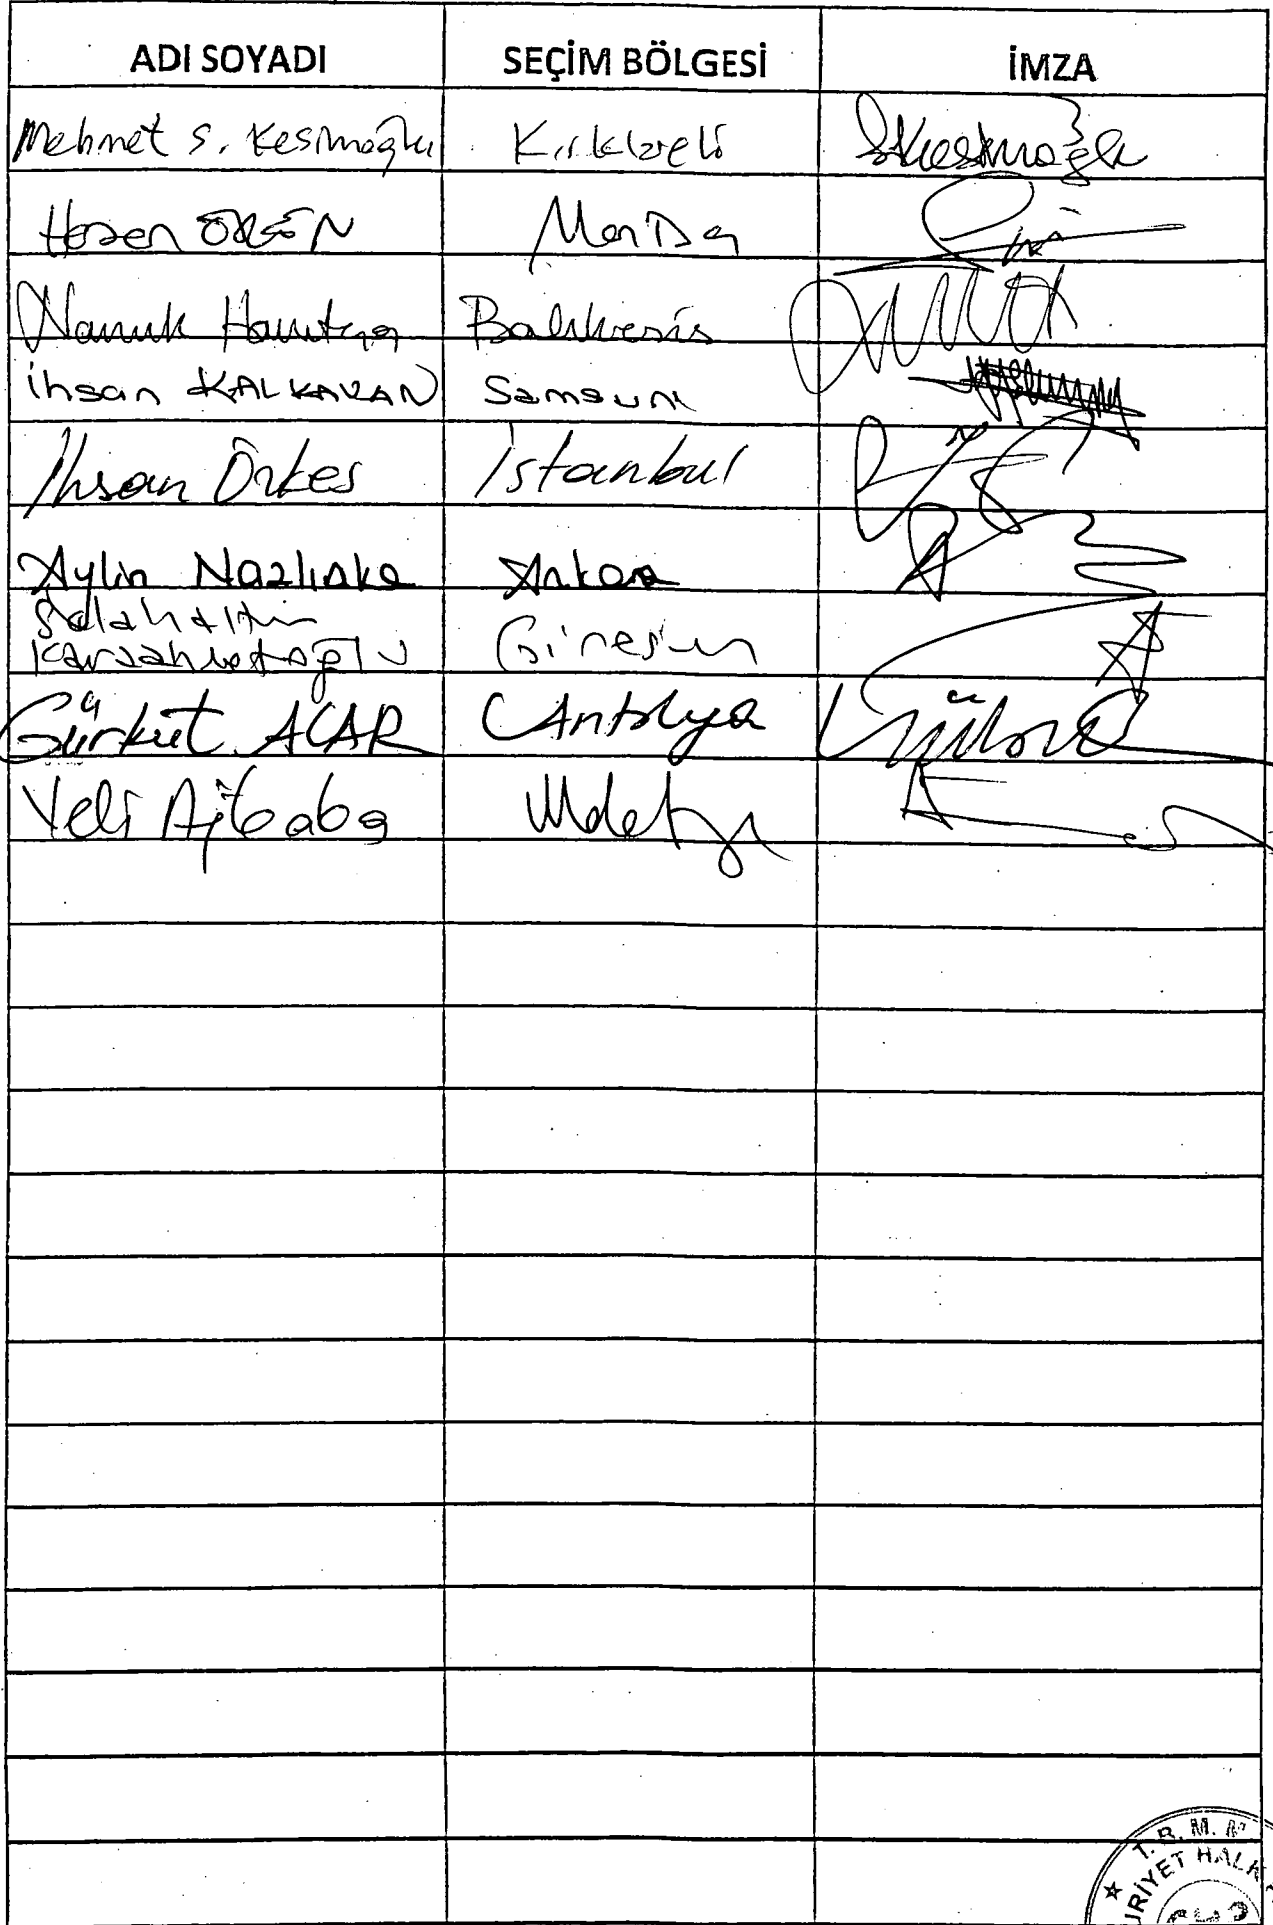 ADI SOYADI SEÇİM BÖLGESİ İMZA
Mehmet S. Kesimoğlu Kırklareli SKesimoğlu
Hasan ÖREN Manisa
Namık Havutça Balıkesir
İhsan KALKAVAN Samsun
İhsan Özkes İstanbul
Aylin Nazlıaka Ankara
Selahattin
Karaahmetoğlu Giresun
Gürkut ACAR Antalya
Veli Ağbaba Malatya
T. B. M. M
RİYET HALK